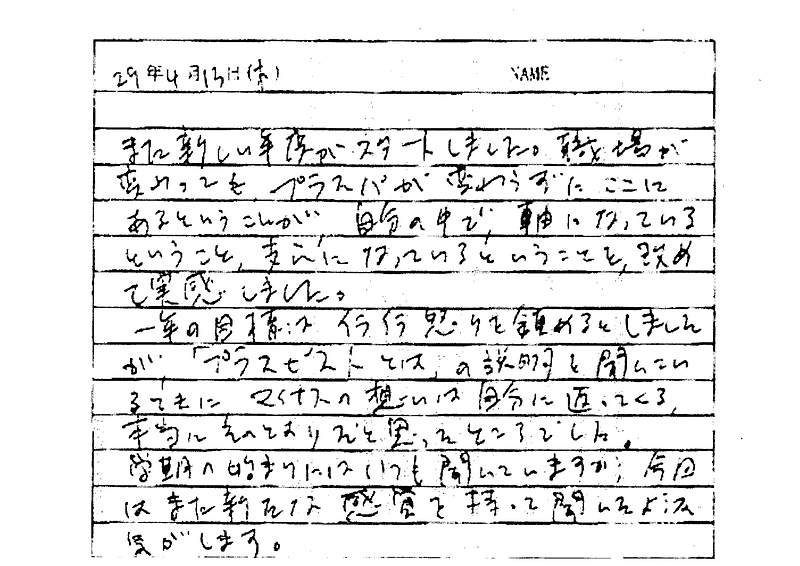 29年4月13日(木)
NAME
また新しい年度がスタートしました。職場が
変わっても、プラスパが変わらずにここに
あるということが 自分の中で、軸になっている
ということ、支えになっているということを、改め
て実感しました。
一年の目標は イライラ怒りを鎮めるとしました
が、「プラスゼストとは」の説明を聞いてい
るときに マイナスの想いは自分に返ってくる、
本当にそのとおりだと思ったところでした。
学期の始まりにはいつも聞いていますが、今回
はまた新たな感覚を持って聞いたような
気がします。